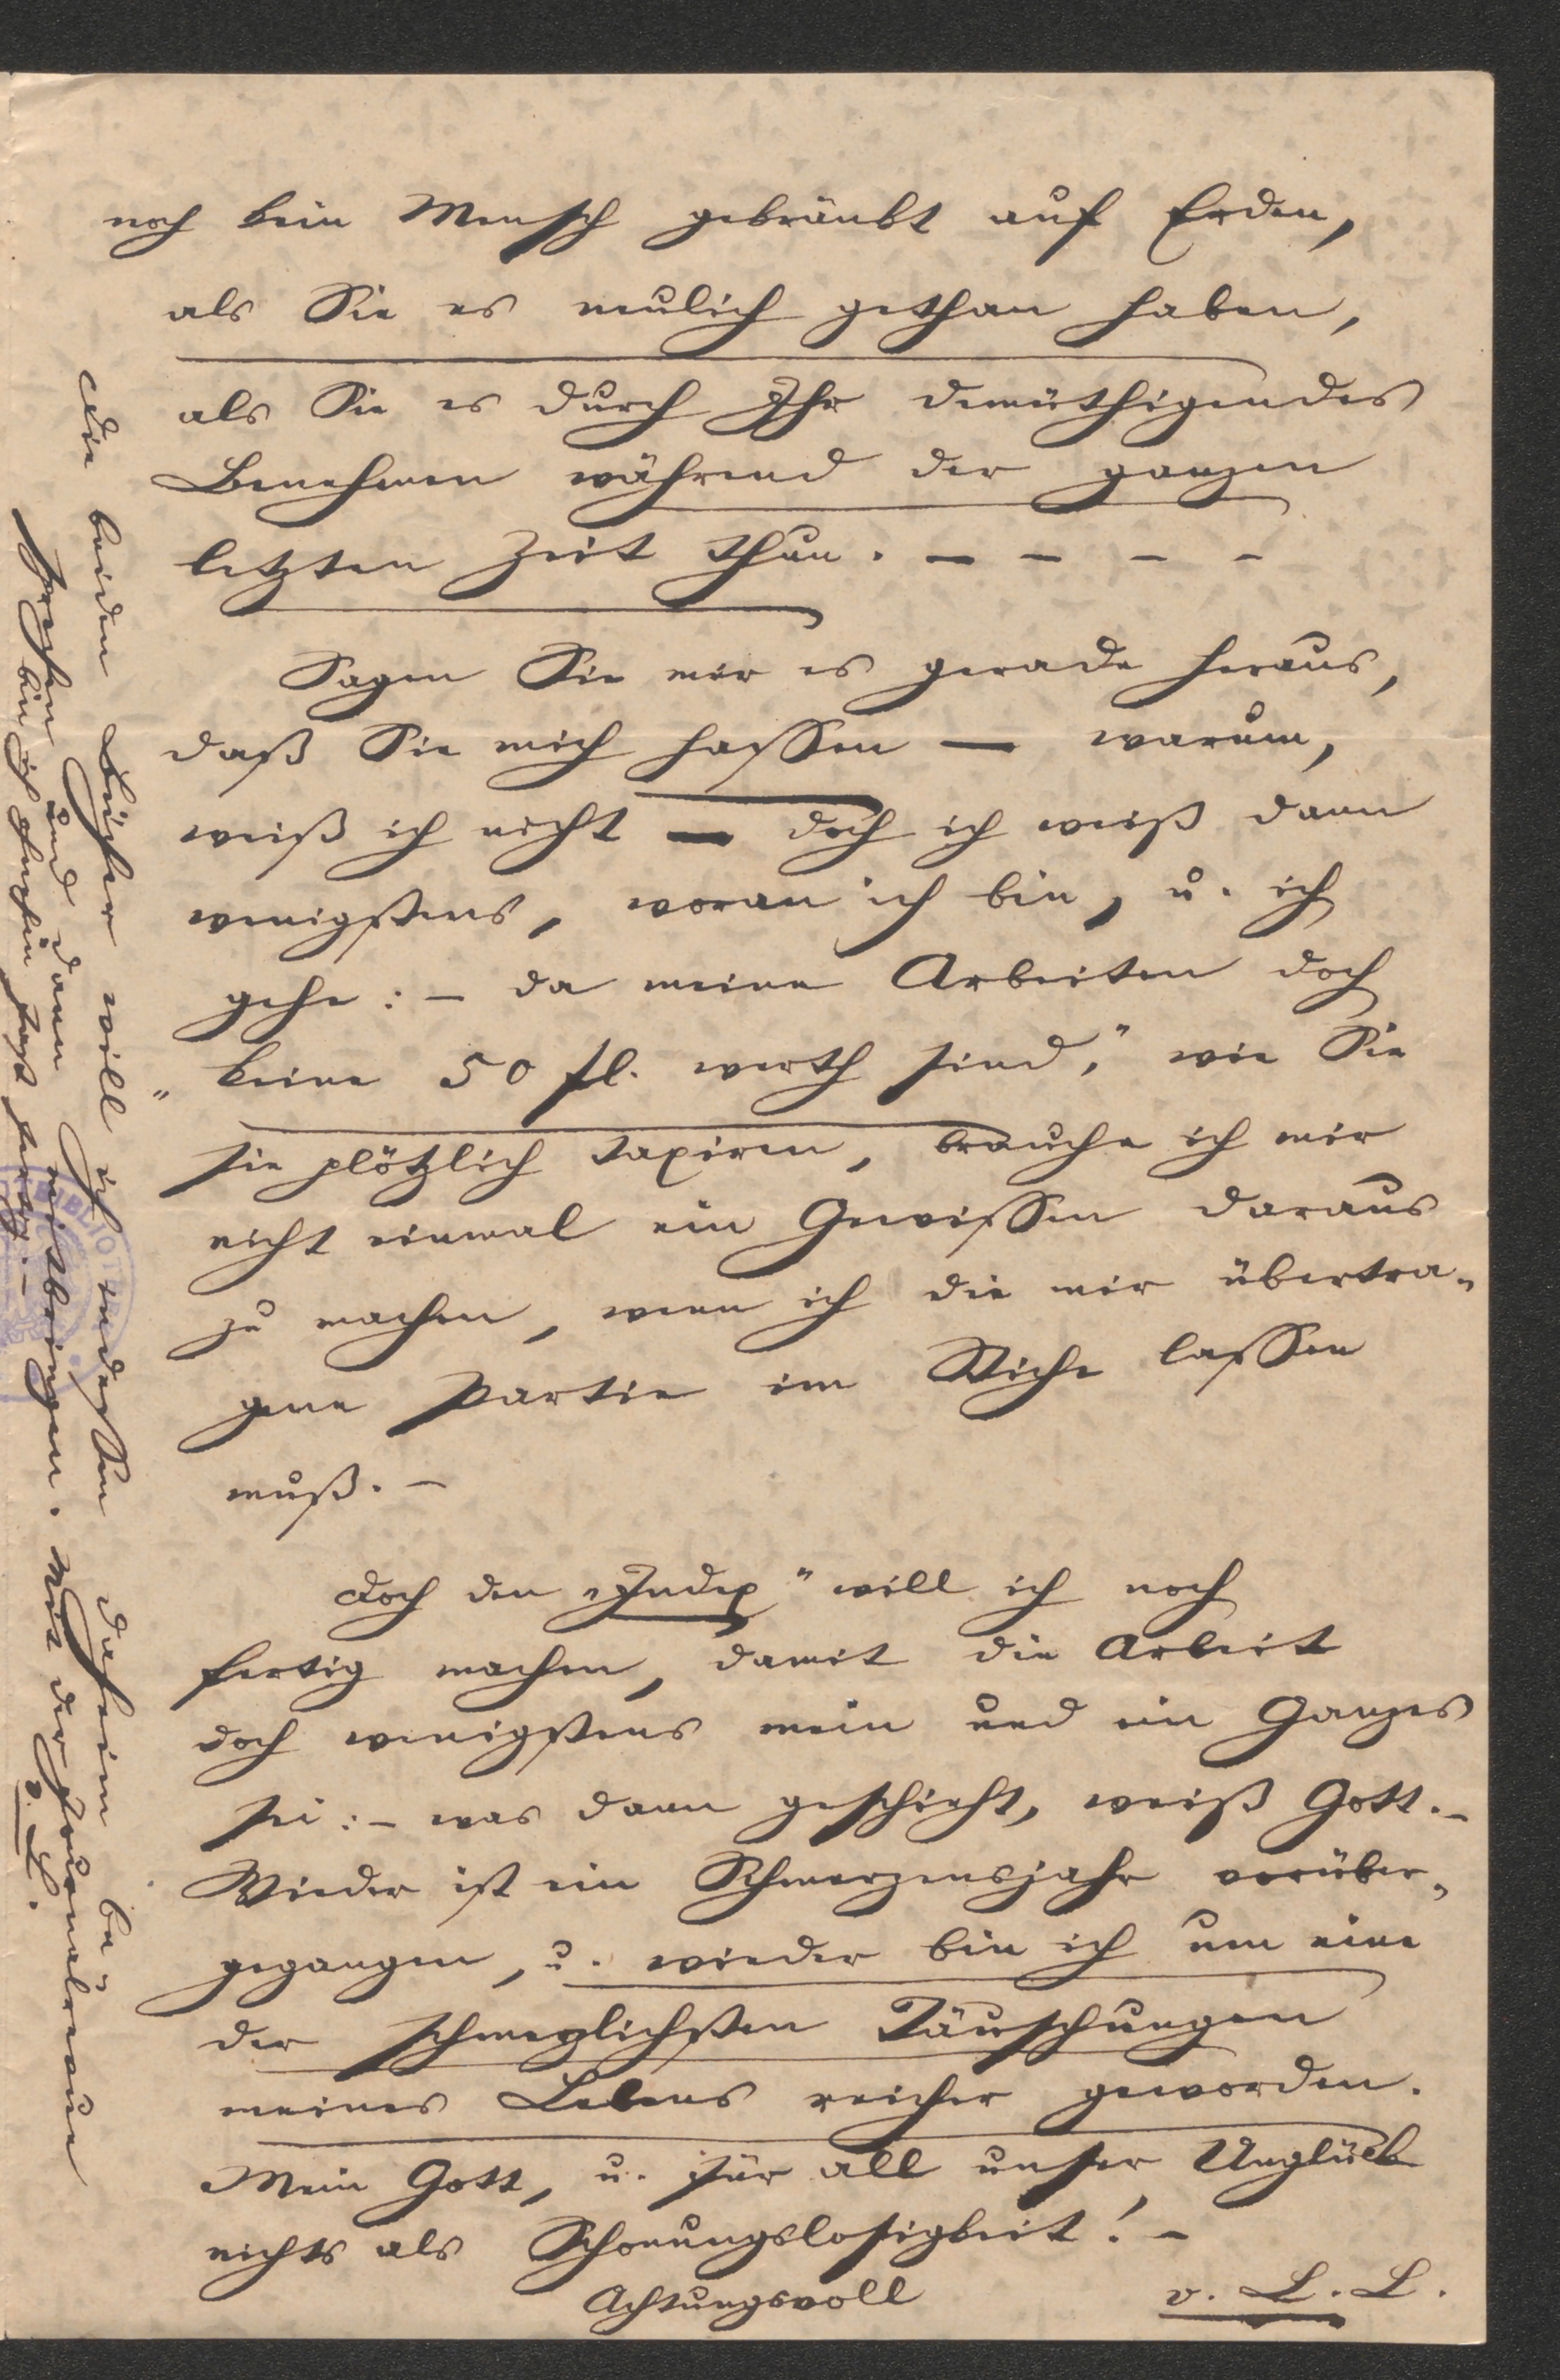 noch kein Mensch gekränkt auf Erden,
als Sie es neulich gethan haben,
als Sie es durch Ihr demüthigendes
Benehmen während der ganzen
letzten Zeit thun. – – – –
Sagen Sie mir es gerade heraus,
daß Sie mich hassen — warum,
weiß ich nicht — doch ich weiß dann
wenigstens, woran ich bin, u. ich
gehe: – da meine Arbeiten doch
„keine 50 fl. werth sind," wie Sie
sie plötzlich taxiren, brauche ich mir
nicht einmal ein Gewissen daraus
zu machen, wenn ich die mir übertra-
gene Partie im Stiche lassen
muß. –
Doch den „Index" will ich noch
fertig machen, damit die Arbeit
doch wenigstens mein und ein Ganzes
sei: – was dann geschieht, weiß Gott. –
Wieder ist ein Schmerzensjahr vorüber-
gegangen, u. wieder bin ich um eine
der schmerzlichsten Täuschungen
meines Lebens reicher geworden.
Mein Gott, u. für all unser Unglück
nichts als Schonungslosigkeit! –
Achtungsvoll v. L. L.
Die beiden Bücher will ich indessen daheim be-
sprechen und dann mitbringen. Mit der Journalrevue
bin ich ohnehin fast fertig. – v. L.
BIBLIOT